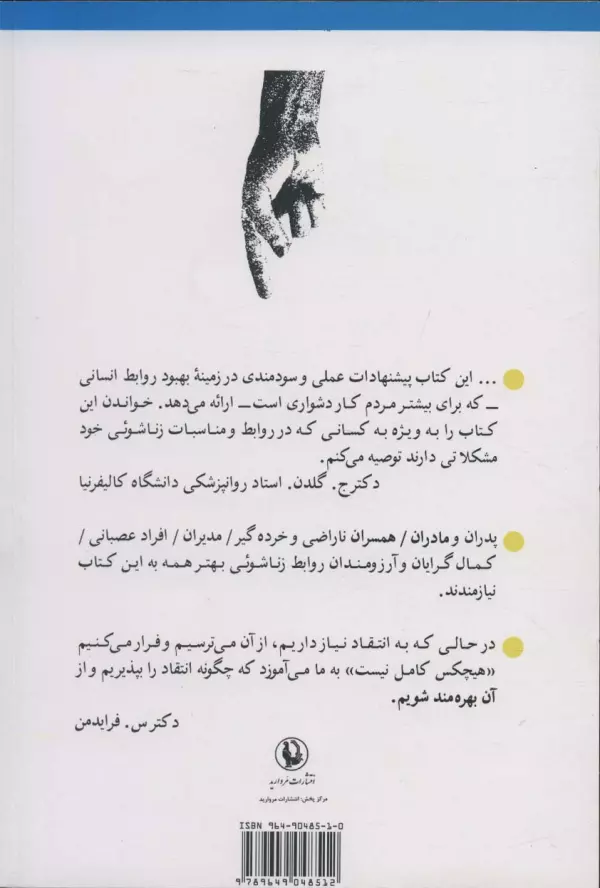 ... این کتاب پیشنهادات عملی و سودمندی در زمینهٔ بهبود روابط انسانی
ـ که برای بیشتر مردم کار دشواری است ـ ارائه می‌دهد. خواندن این
کتاب را به ویژه به کسانی که در روابط و مناسبات زناشوئی خود
مشکلاتی دارند توصیه می‌کنم.
دکتر ج. گلدن. استاد روانپزشکی دانشگاه کالیفرنیا
پدران و مادران / همسران ناراضی و خرده گیر / مدیران / افراد عصبانی /
کمال گرایان و آرزومندان روابط زناشوئی بهتر همه به این کتاب
نیازمندند.
در حالی که به انتقاد نیاز داریم، از آن می‌ترسیم و فرار می‌کنیم
«هیچکس کامل نیست» به ما می‌آموزد که چگونه انتقاد را بپذیریم و از
آن بهره‌مند شویم.
دکتر س. فرایدمن
انتشارات مروارید
مرکز پخش: انتشارات مروارید
ISBN 964-90485-1-0
9 789649 048512